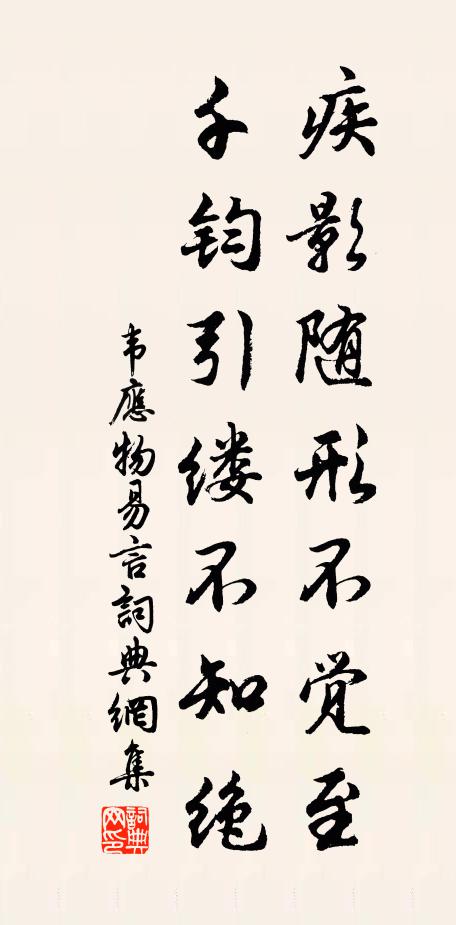 疾影随形不觉至
千钧引缕不知绝
韦應物易言詞典網集
詞典網印